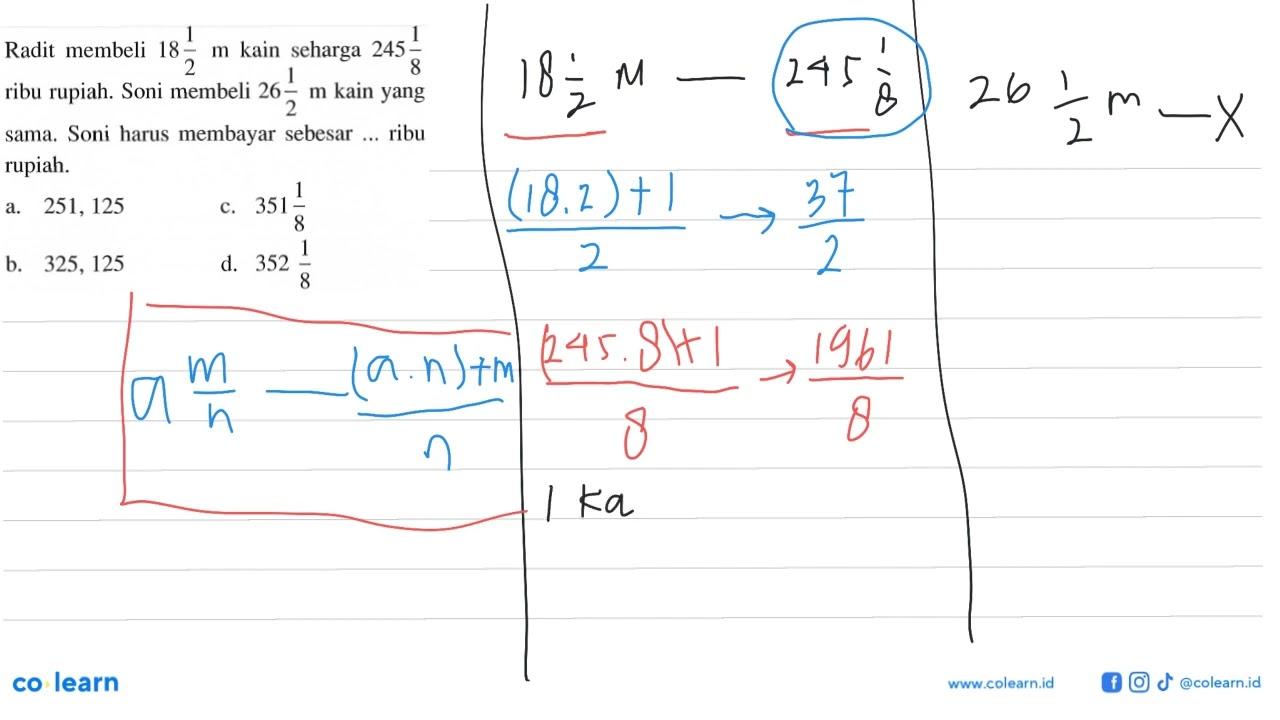 Radit membeli 18 1/2 m kain seharga 245 1/8
ribu rupiah. Soni membeli 26 1/2 m kain yang
sama. Soni harus membayar sebesar ... ribu
rupiah.
a. 251, 125 c. 351 1/8
b. 325, 125 d. 352 1/8
a m/n — (a.n)+m/n
18 1/2 M — 245 1/8
(18.2)+1/2 → 37/2
(245.8)+1/8 → 1961/8
1 Ka
26 1/2 m — X
co learn
www.colearn.id @colearn.id